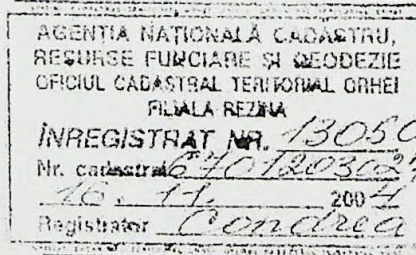 AGENȚIA NAȚIONALĂ CADASTRU,
RESURSE FUNCIARE ȘI GEODEZIE
OFICIUL CADASTRAL TERITORIAL ORHEI
FILIALA REZINA
ÎNREGISTRAT NR. 13050
Nr. cadastral 67012030
16. 11. 2004
Registrator Condrea